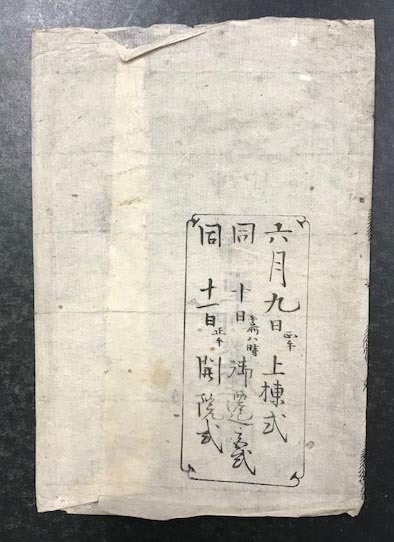 六月九日正午上棟式
同十日午前八時御遷式
同十一日正午開院式